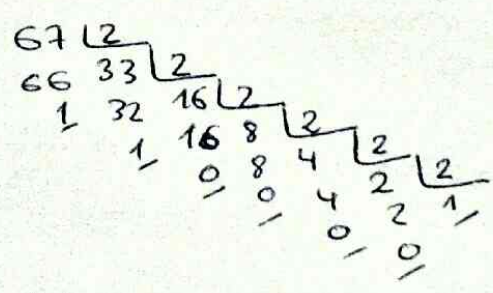 67 2
66 33 2
1 32 16 2
1 16 8 2
0 8 4 2
0 4 2 2
0 2 1
0